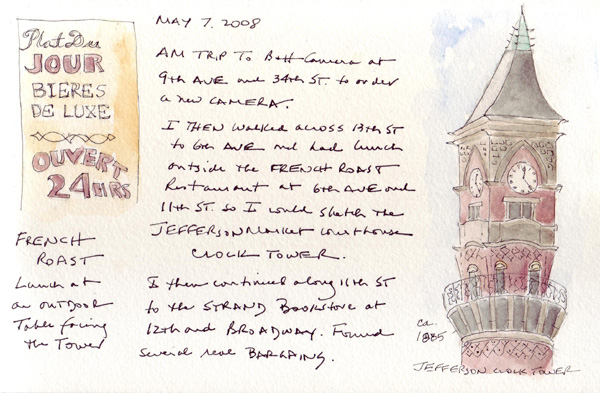 Plat Du
JOUR
BIERES
DE LUXE
OUVERT
24HRS
FRENCH
ROAST
Lunch at
an OUTDOOR
Table facing
the Tower
MAY 7. 2008
AM TRIP TO B+H Camera at
9th AVE and 34th ST. to order
a new CAMERA.
I THEN WALKED ACROSS 13th ST
to 6th AVE and had lunch
outside the FRENCH ROAST
Restaurant at 6th AVE and
11th ST. so I could sketch the
JEFFERSON Market Courthouse
CLOCK TOWER.
I then continued along 11th ST
to the STRAND BOOKSTORE at
12th and BROADWAY. Found
several real BARGAINS.
ca.
1885
JEFFERSON CLOCK TOWER